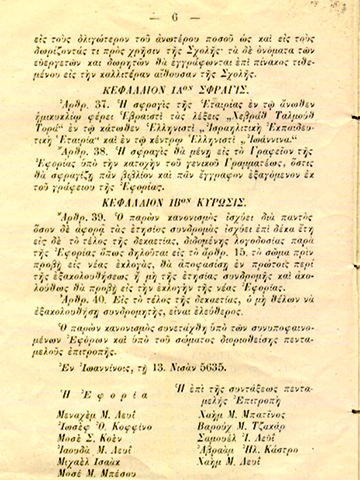 — 6 —
εἰς τοὺς ὀλιγώτερον τοῦ ἀνωτέρου ποσοῦ ὡς καὶ εἰς τοὺς
δωρίζοντάς τι πρὸς χρῆσιν τῆς Σχολῆς· τὰ δὲ ὀνόματα τῶν
εὐεργετῶν καὶ δωρητῶν θὰ ἐγγράφωνται ἐπὶ πίνακος τιθε-
μένου εἰς τὴν καλλιτέραν αἴθουσαν τῆς Σχολῆς.
ΚΕΦΑΛΑΙΟΝ ΙΑον ΣΦΡΑΓΙΣ.
Ἄρθρ. 37. Ἡ σφραγὶς τῆς Ἑταιρίας ἐν τῷ ἄνωθεν
ἡμικυκλίῳ φέρει Ἑβραϊστὶ τὰς λέξεις „Νεβρᾶθ Ταλμοὺδ
Τορᾶ“ ἐν τῷ κάτωθεν Ἑλληνιστὶ „Ἰσραηλιτικὴ Ἐκπαιδευ-
τικὴ Ἑταιρία“ καὶ ἐν τῷ κέντρῳ Ἑλληνιστὶ „Ἰωάννινα“.
Ἄρθρ. 38. Ἡ σφραγὶς θὰ μένῃ εἰς τὸ Γραφεῖον τῆς
Ἐφορίας ὑπὸ τὴν κατοχὴν τοῦ γενικοῦ Γραμματέως, ὅστις
θὰ σφραγίζῃ πᾶν βιβλίον καὶ πᾶν ἔγγραφον ἐξαγόμενον ἐκ
τοῦ γραφείου τῆς Ἐφορίας.
ΚΕΦΑΛΑΙΟΝ ΙΒον ΚΥΡΩΣΙΣ.
Ἄρθρ. 39. Ὁ παρὼν κανονισμὸς ἰσχύει διὰ παντὸς
ὅσον δὲ ἀφορᾷ τὰς ἐτησίας συνδρομὰς ἰσχύει ἐπὶ δέκα ἔτη
εἰς δὲ τὸ τέλος τῆς δεκαετίας, διδομένης λογοδοσίας παρὰ
τῆς Ἐφορίας ὅπως δηλοῦται εἰς τὸ ἄρθρ. 15, τὸ σῶμα πρὶν
προβῇ εἰς νέας ἐκλογάς, θὰ ἀποφασίσῃ ἐν πρώτοις περὶ
τῆς ἐξακολουθήσεως ἢ μὴ τῆς ἐτησίας συνδρομῆς καὶ ἀκο-
λούθως θὰ προβῇ εἰς τὴν ἐκλογὴν τῆς νέας Ἐφορίας.
Ἄρθρ. 40. Εἰς τὸ τέλος τῆς δεκαετίας, ὁ μὴ θέλων νὰ
ἐξακολουθήσῃ συνδρομητής, εἶναι ἐλεύθερος.
Ὁ παρὼν κανονισμὸς συνετάχθη ὑπὸ τῶν συνυποφαινο-
μένων Ἐφόρων καὶ ὑπὸ τοῦ σώματος διορισθείσης πεντα-
μελοῦς ἐπιτροπῆς.
Ἐν Ἰωαννίνοις, τῇ 13. Νισὰν 5635.
Ἡ Ἐφορία
Μεναχὲμ Μ. Λευΐ
Ἰωσὲφ Ὀ. Κοφφίνο
Μοσὲ Σ. Κοὲν
Ἰαουδὰ Μ. Λευΐ
Μιχαὲλ Ἰσαὰκ
Μοσὲ Μ. Μπέσου
Ἡ ἐπὶ τῆς συντάξεως πεντα-
μελὴς Ἐπιτροπὴ
Χαῒμ Μ. Μπατῖνος
Βαροὺχ Μ. Τζαχὰρ
Σαμουὲλ Ἰ. Λευΐ
Ἀβραὰμ Ἠλ. Κάστρο
Χαῒμ Μ. Λευΐ